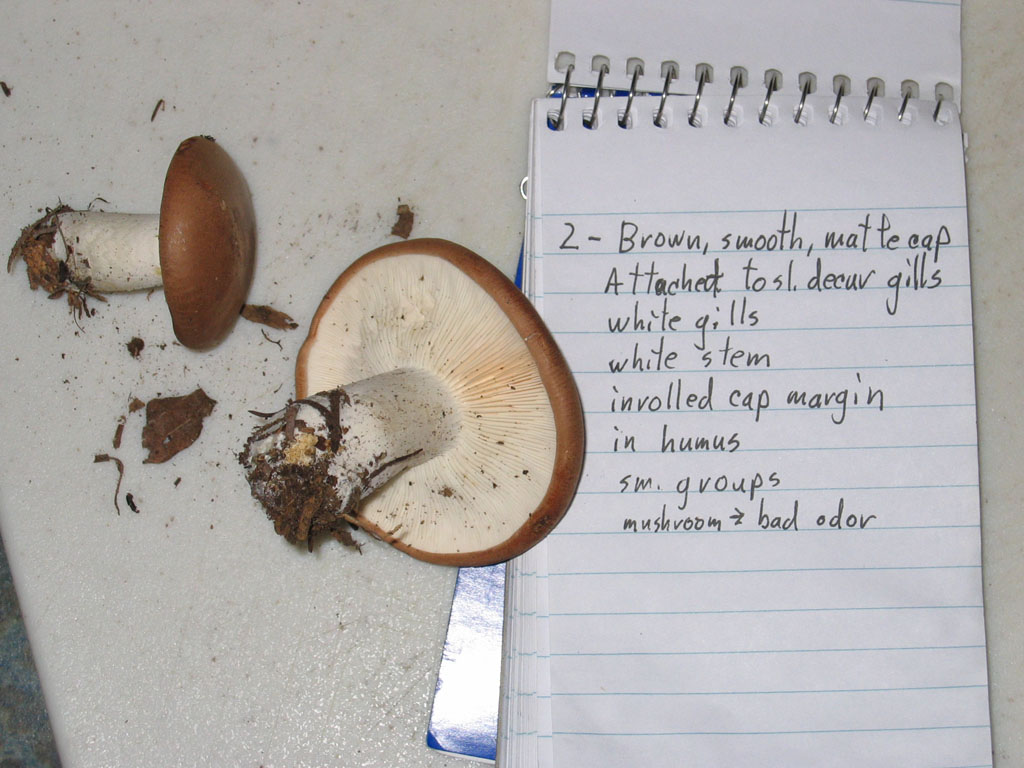 2 - Brown, smooth, matte cap
Attached to sl. decur gills
white gills
white stem
inrolled cap margin
in humus
sm. groups
mushroom → bad odor